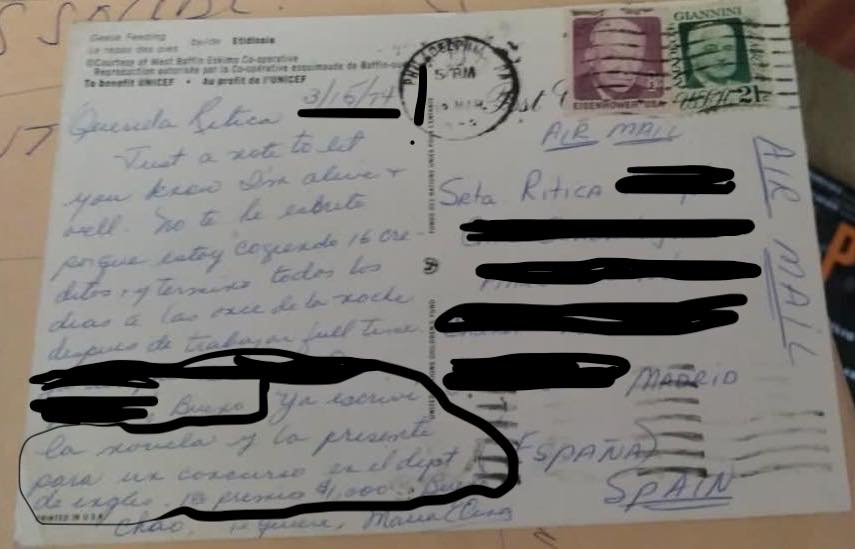 Geese Feeding
Le repas des oies
by/de Etidlooie
©Courtesy of West Baffin Eskimo Co-operative
Reproduction autorisée par la Co-opérative esquimaude de Baffin-ou
To benefit UNICEF • Au profit de l'UNICEF
3/15/74
Querida Ritica
Just a note to let
you know I'm alive +
well. No te he escrito
porque estoy cogiendo 16 cre-
ditos, y termino todos los
dias a las once de la noche
despues de trabajar full time.
Bueno Ya escribi
la novela y la presente
para un concurso en el dept
de ingles. 1º premio $1,000.
Chao, Te quiere, Maria
PRINTED IN U.S.A.
UNITED NATIONS CHILDREN'S FUND
FONDS DES NATIONS UNIES POUR L'ENFANCE
PHILADELPHIA, PA
5 PM
MAR
EISENHOWER USA
GIANNINI
AMADEO P
21¢
Post
AIR MAIL
Srta. RITICA
MADRID
(ESPAÑA)
SPAIN
AIR MAIL